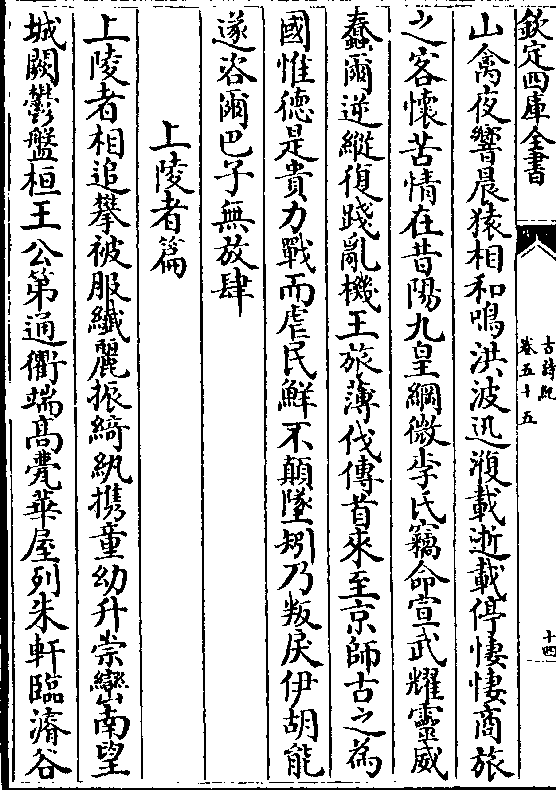 欽定四庫全書
古詩紀
卷五十五
十四
山禽夜響晨猿相和鳴洪波迅澓載逝載停悽悽商旅
之客懷苦情在昔陽九皇綱微李氏竊命宣武耀靈威
蠢爾逆縱復踐亂機王旅薄伐傳首來至京師古之為
國惟德是貴力戰而虐民鮮不顛墜矧乃叛戾伊胡能
遂咨爾巴子無放肆
上陵者篇
上陵者相追攀被服纖麗振綺紈携童幼升崇巒南望
城闕鬱盤桓王公第通衢端高甍華屋列朱軒臨濬谷